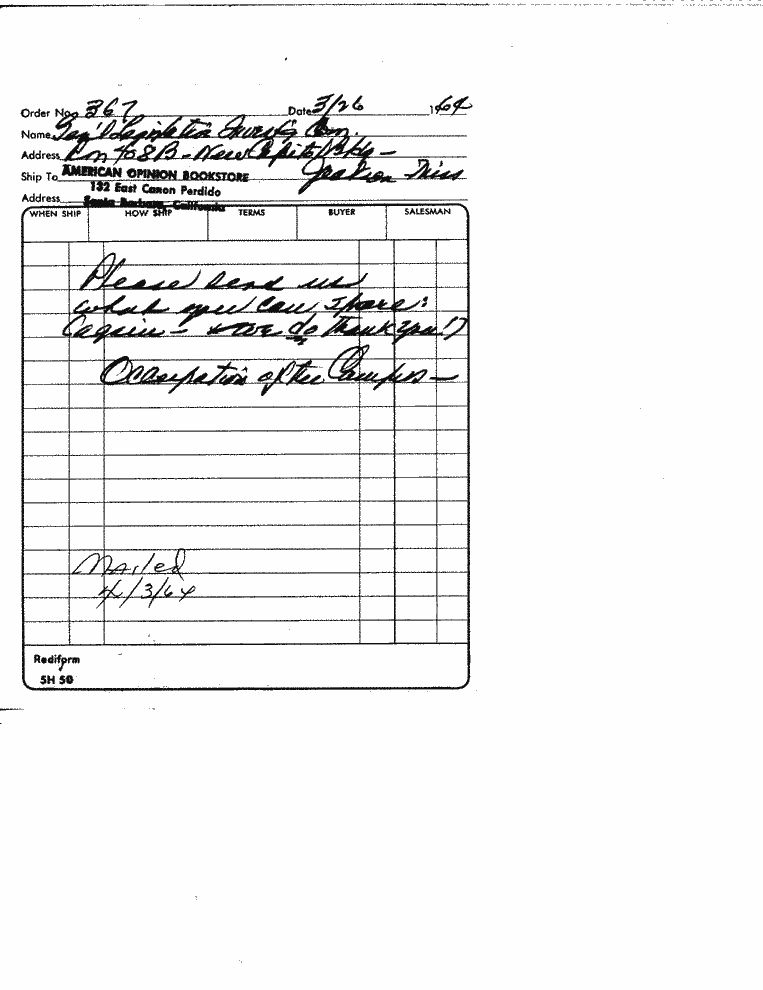 Order No. 367 Date 3/26 1964
Name Gen'l Legislative Investig Com.
Address Rm 408B - New Capitol Bldg -
Ship To AMERICAN OPINION BOOKSTORE Jackson Miss
132 East Canon Perdido
Address Santa Barbara, California
WHEN SHIP HOW SHIP TERMS BUYER SALESMAN
Please send us
what you can spare:
(again - + we do thank you!)
Occupation of the Campus -
Mailed
4/3/64
Rediform
5H 50